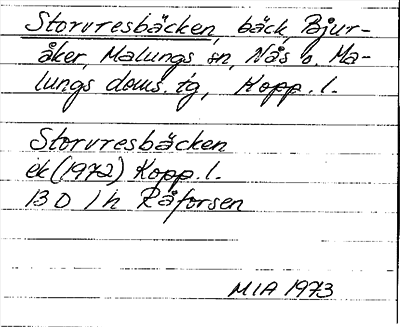 Storvresbäcken, bäck, Bjur-
åker, Malungs sn, Nås o. Ma-
lungs doms. tg, Kopp. l.
Storvresbäcken
ek (1972) Kopp. l.
13 D 1h Råforsen
MIA 1973